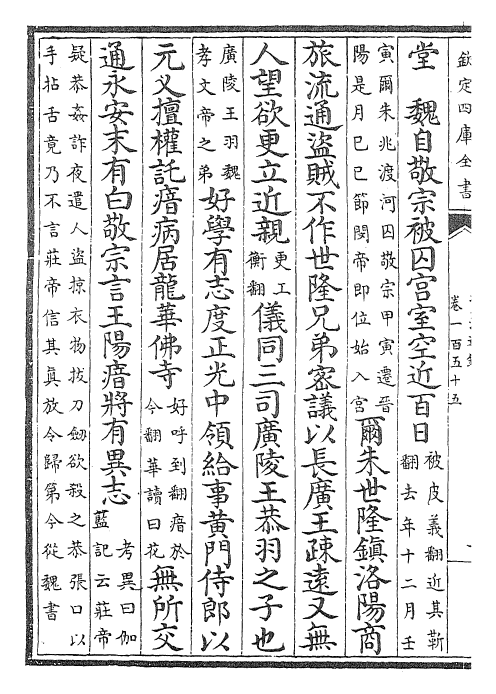 欽定四庫全書
卷一百五十五
堂　魏自敬宗被囚宮室空近百日被皮義翻近其靳翻去年十二月壬
寅爾朱兆渡河囚敬宗甲寅遷晉陽是月巳巳節閔帝即位始入宮爾朱世隆鎮洛陽商
旅流通盜賊不作世隆兄弟密議以長廣王疎遠又無
人望欲更立近親更工衡翻儀同三司廣陵王恭羽之子也
廣陵王羽魏孝文帝之弟好學有志度正光中領給事黄門侍郎以
元义擅權託瘖病居龍華佛寺好呼到翻瘖於今翻華讀曰花無所交
通永安末有白敬宗言王陽瘖將有異志考異曰伽藍記云莊帝
疑恭姦詐夜遣人盜掠衣物拔刀劔欲殺之恭張口以手拈舌竟乃不言莊帝信其真放令歸第今從魏書